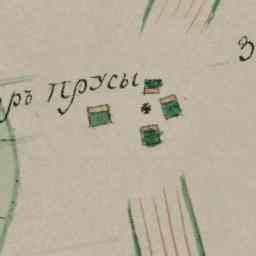 ръ Прусы